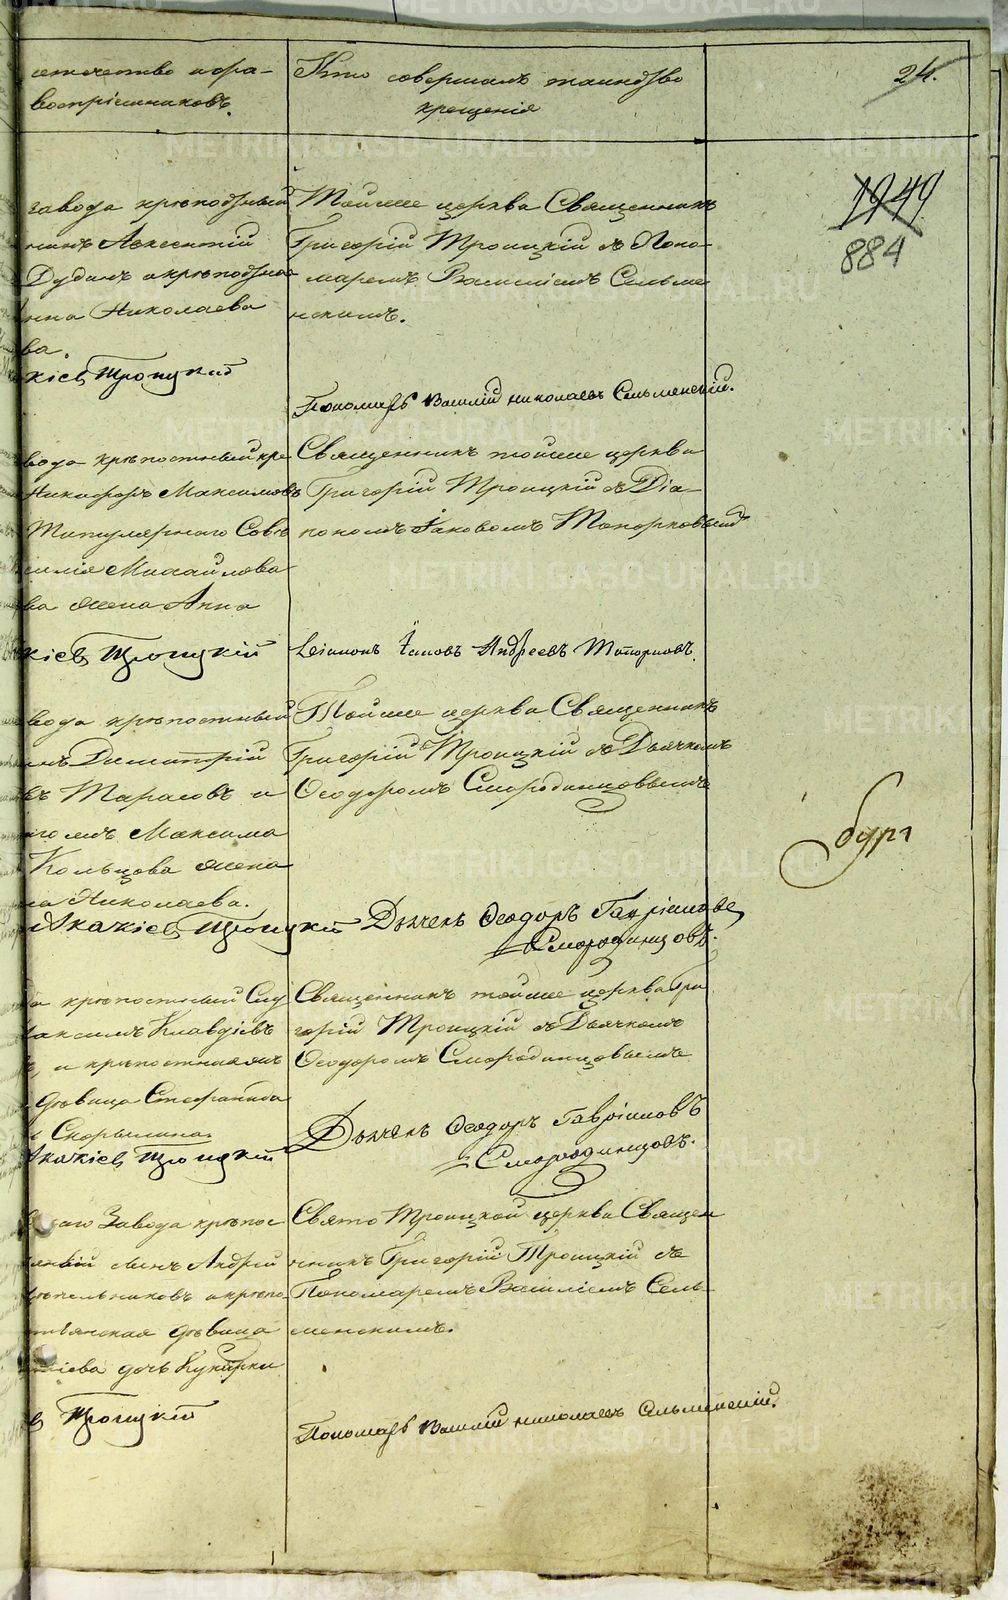 24.
отечество и фа-
воспріемниковъ.
Кто совершалъ таинство
крещенія
1949
884
завода крѣпостный
нинъ Авксентій
Дудинъ и крѣпостная
Анна Николаева
ва.
кіевъ Троицкій
Тойже церкви Священникъ
Григорій Троицкій съ Поно-
маремъ Василіемъ Сельме
нскимъ.
Пономарь Василій Николаевъ Сельменскій.
вода крѣпостный кре
Никифоръ Максимовъ
Титулярнаго Совѣ
силія Михайлова
ва жена Анна
кіевъ Троицкій
Священникъ тойже церкви
Григорій Троицкій съ Діа
кономъ Іаковомъ Топорковымъ
Діаконъ Іаковъ Андреевъ Топорковъ.
вода крѣпостный
нъ Димитрій
въ Тарасовъ и
гомъ Максима
Кольцова жена
на Николаева.
Акакіевъ Троицкій
Тойже церкви Священникъ
Григорій Троицкій съ Дьячкомъ
Ѳеодоромъ Смородинцовымъ
Дьячекъ Ѳеодоръ Гавріиловъ
Смородинцовъ.
бург
а крѣпостный Слу
Максимъ Клавдіевъ
ъ, и крѣпостная
дѣвица Стефанида
Скорынина.
Акакіевъ Троицкій
Священникъ тойже церкви Гри
горій Троицкій съ Дьячкомъ
Ѳеодоромъ Смородинцовымъ
Дьячекъ Ѳеодоръ Гавріиловъ
Смородинцовъ.
скаго Завода крѣпос
нинъ Андрей
и крѣпо-
стьянская дѣвица
сіева дочь
въ Троицкій
Свято Троицкой церкви Священ
никъ Григорій Троицкій съ
Пономаремъ Василіемъ Сель-
менскимъ.
Пономарь Василій Николаевъ Сельменскій.
METRIKI.GASO-URAL.RU